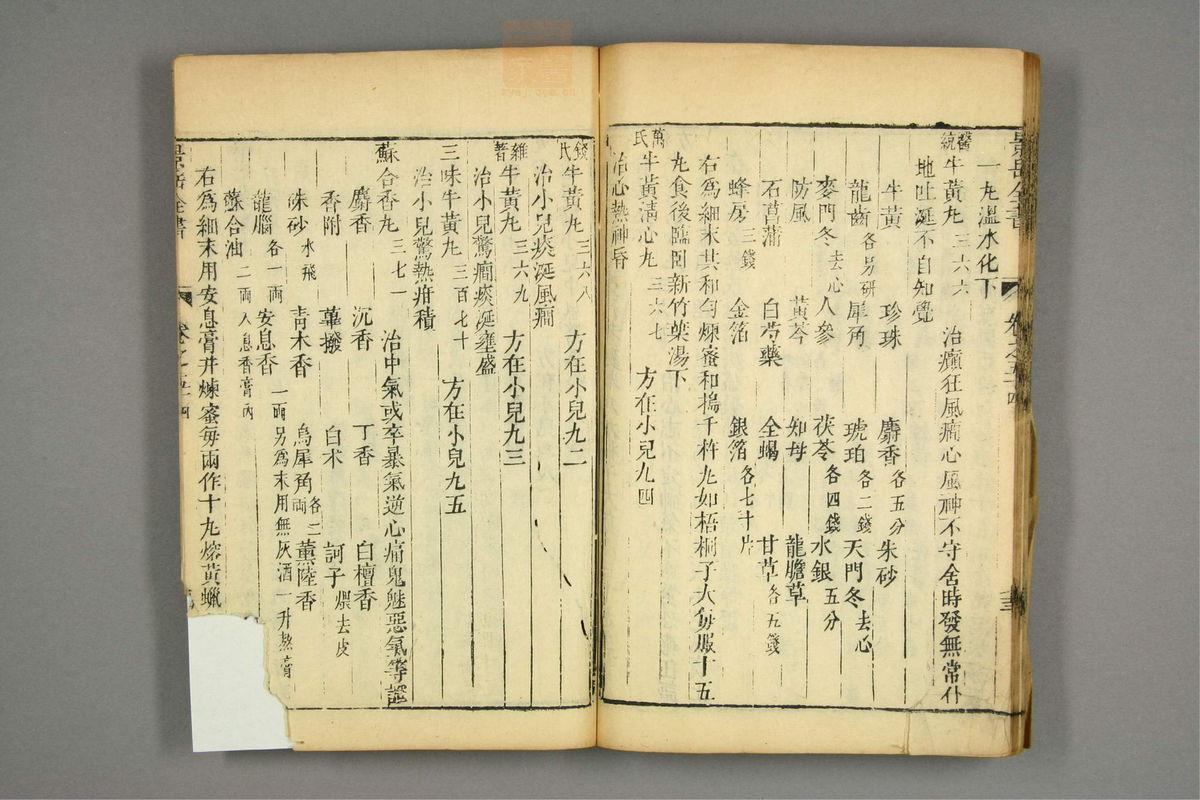 景岳全書
卷之五十四
一丸溫水化下
醫統牛黃丸 三六六 治癲狂風癎心風神不守舍時發無常仆
地吐涎不自知覺
牛黃 珍珠 麝香各五分 朱砂
龍齒各另研 犀角 琥珀各二錢 天門冬去心
麥門冬去心 人參 茯苓各四錢 水銀五分
防風 黃芩 知母 龍膽草
石菖蒲 白芍藥 全蝎 甘草各五錢
蜂房三錢 金箔 銀箔各七十片
右為細末共和勻煉蜜和搗千杵丸如梧桐子大每服十五
丸食後臨臥新竹葉湯下
萬氏牛黃清心丸 三六七 方在小兒九四
治心熱神昏
錢氏牛黃丸 三六八 方在小兒九二
治小兒痰涎風癎
雜著牛黃丸 三六九 方在小兒九三
治小兒驚癎痰涎壅盛
三味牛黃丸 三百七十 方在小兒九五
治小兒驚熱疳積
蘇合香丸 三七一 治中氣或卒暴氣逆心痛鬼魅惡氣等證
麝香 沉香 丁香 白檀香
香附 蓽撥 白术 訶子煨去皮
硃砂水飛 青木香 烏犀角各二兩 薰陸香
龍腦各一兩 安息香一兩另為末用無灰酒一升熬膏
蘇合油二兩入息香膏內
右為細末用安息膏并煉蜜每兩作十丸熔黃蠟
景岳全書
卷之五十四